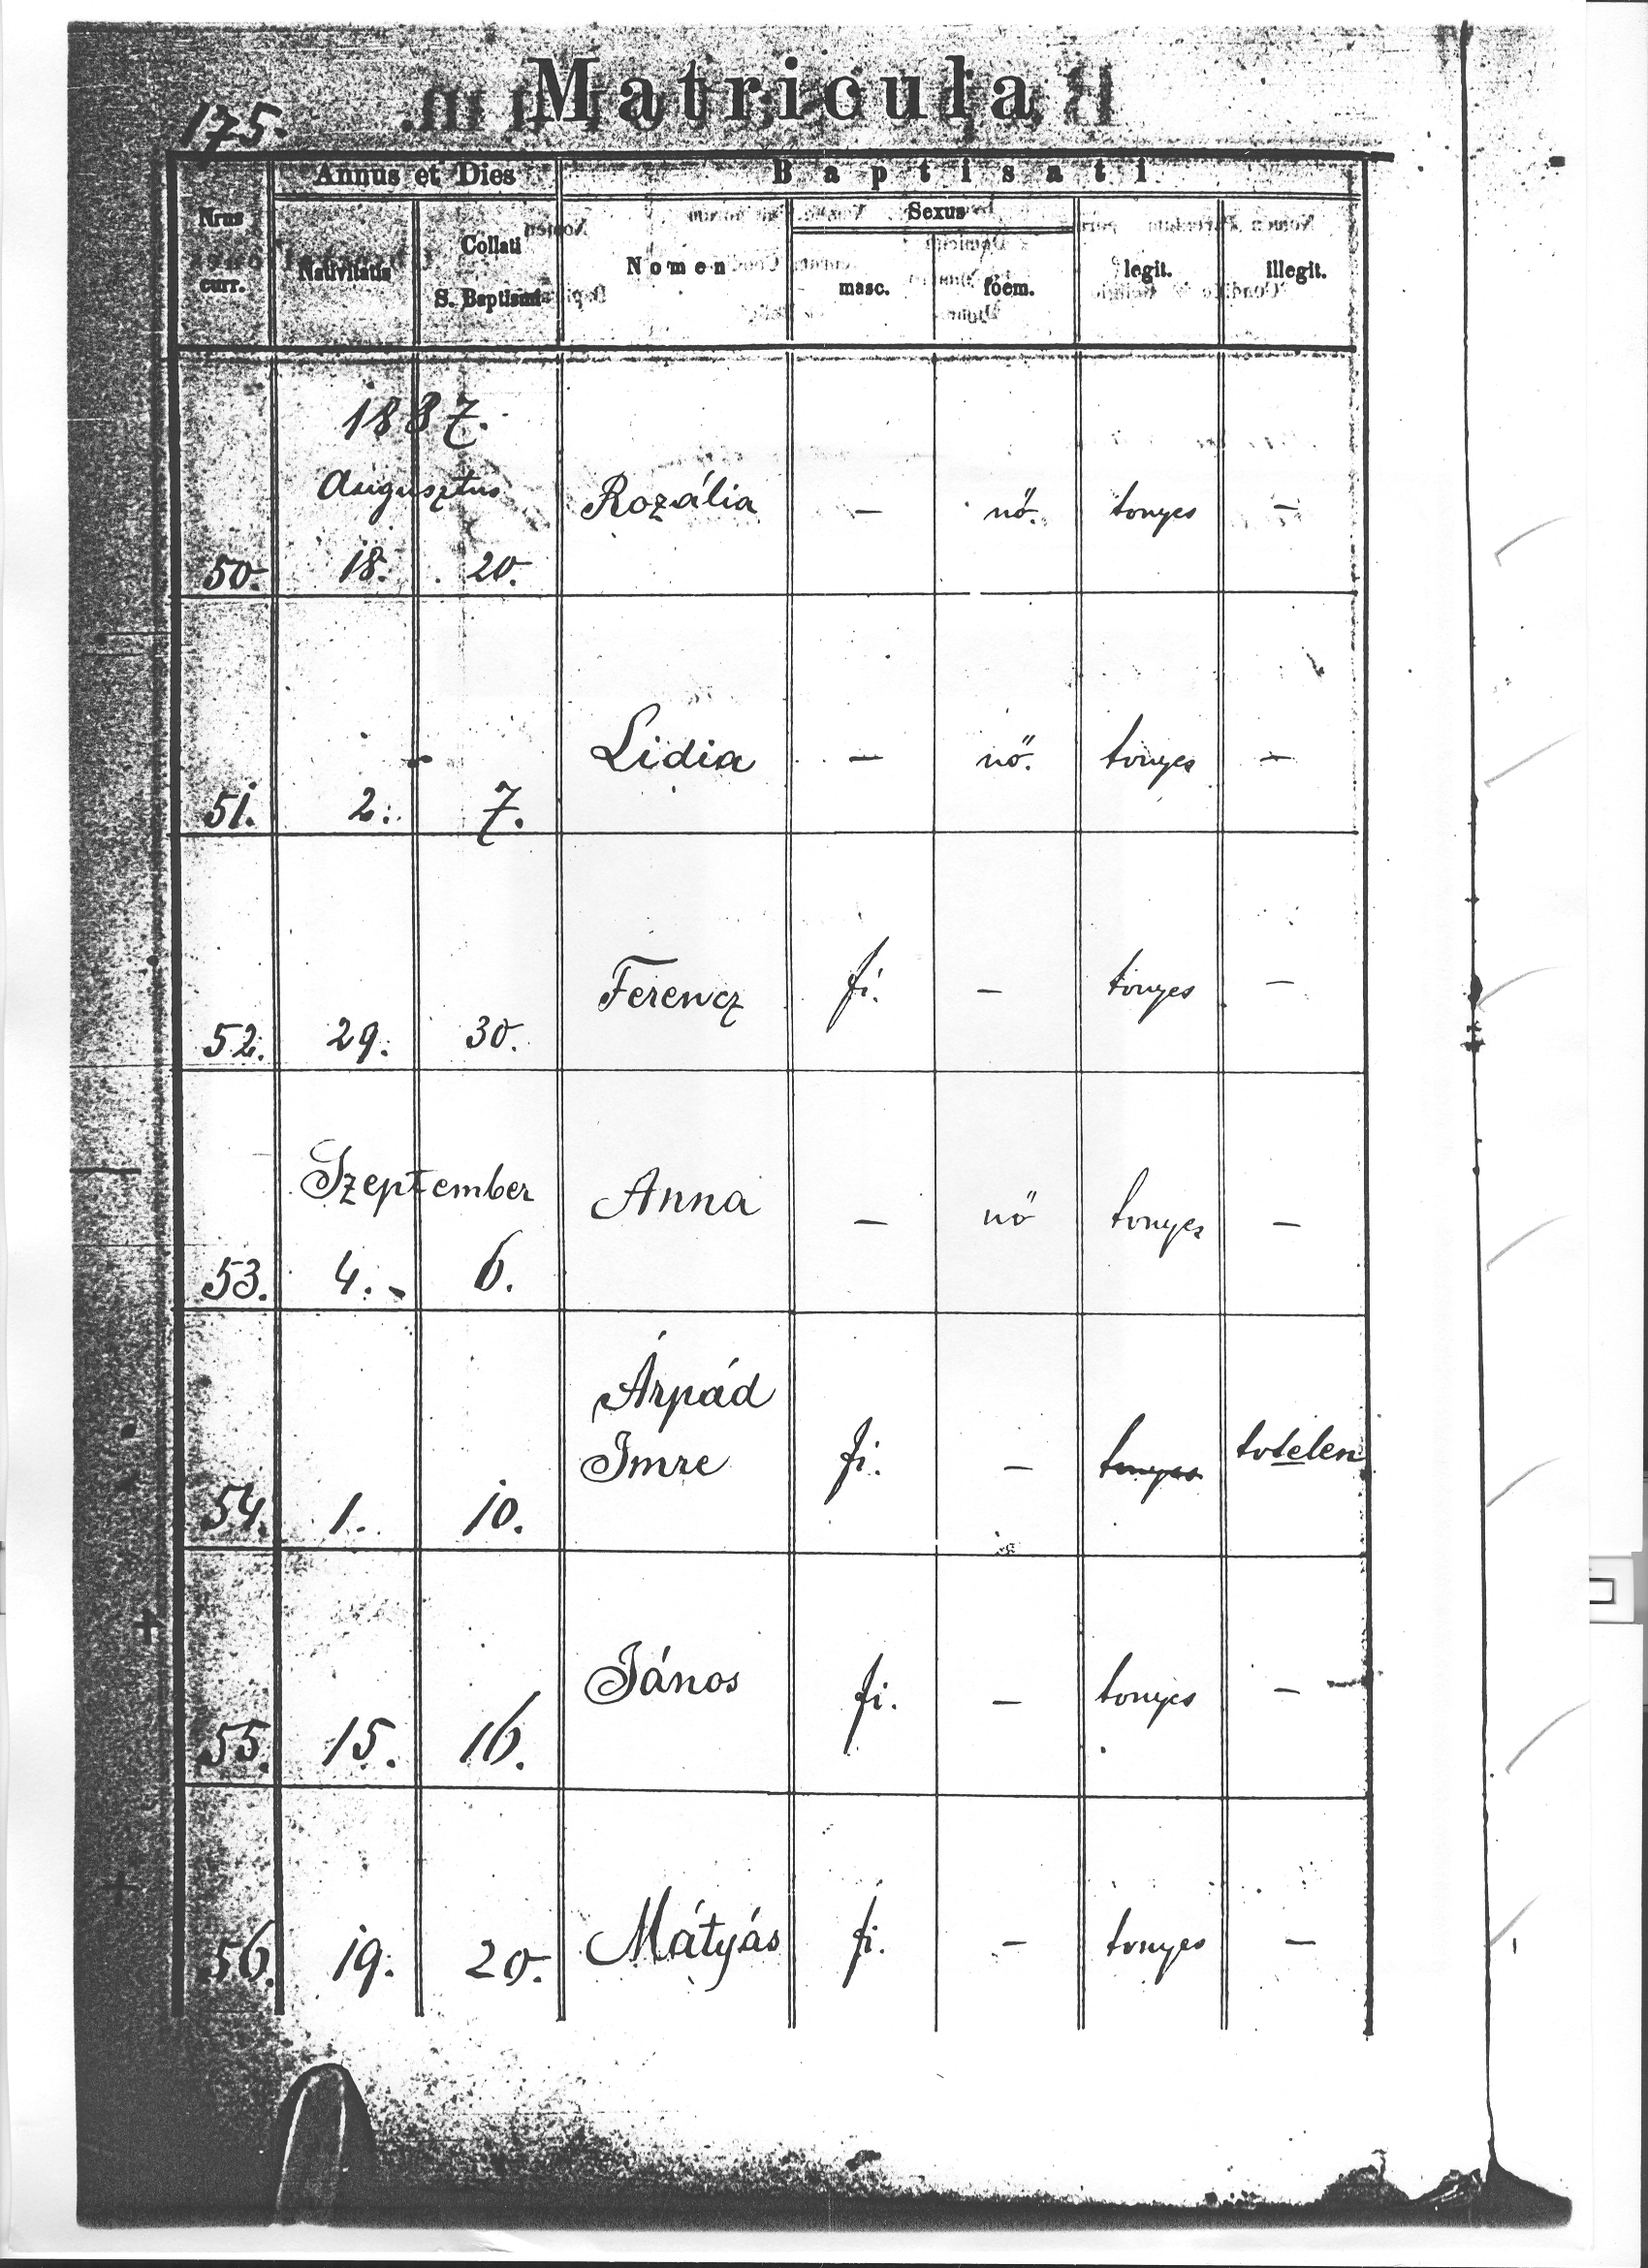 175.
Matricula
Annus et Dies
Baptisati
Nrus
curr.
Nativitatis
Collati
S. Baptismi
Nomen
Sexus
masc.
foem.
legit.
illegit.
1887.
Augusztus
50. 18. 20. Rozália — nő. tvnyes —
51. 2. 7. Lidia — nő. tvnyes —
52. 29. 30. Ferencz fi. — tvnyes —
Szeptember
53. 4. 6. Anna — nő tvnyes —
Árpád
54. 1. 10. Imre fi. — tvnyes tvtelen
55. 15. 16. János fi. — tvnyes —
56. 19. 20. Mátyás fi. — tvnyes —